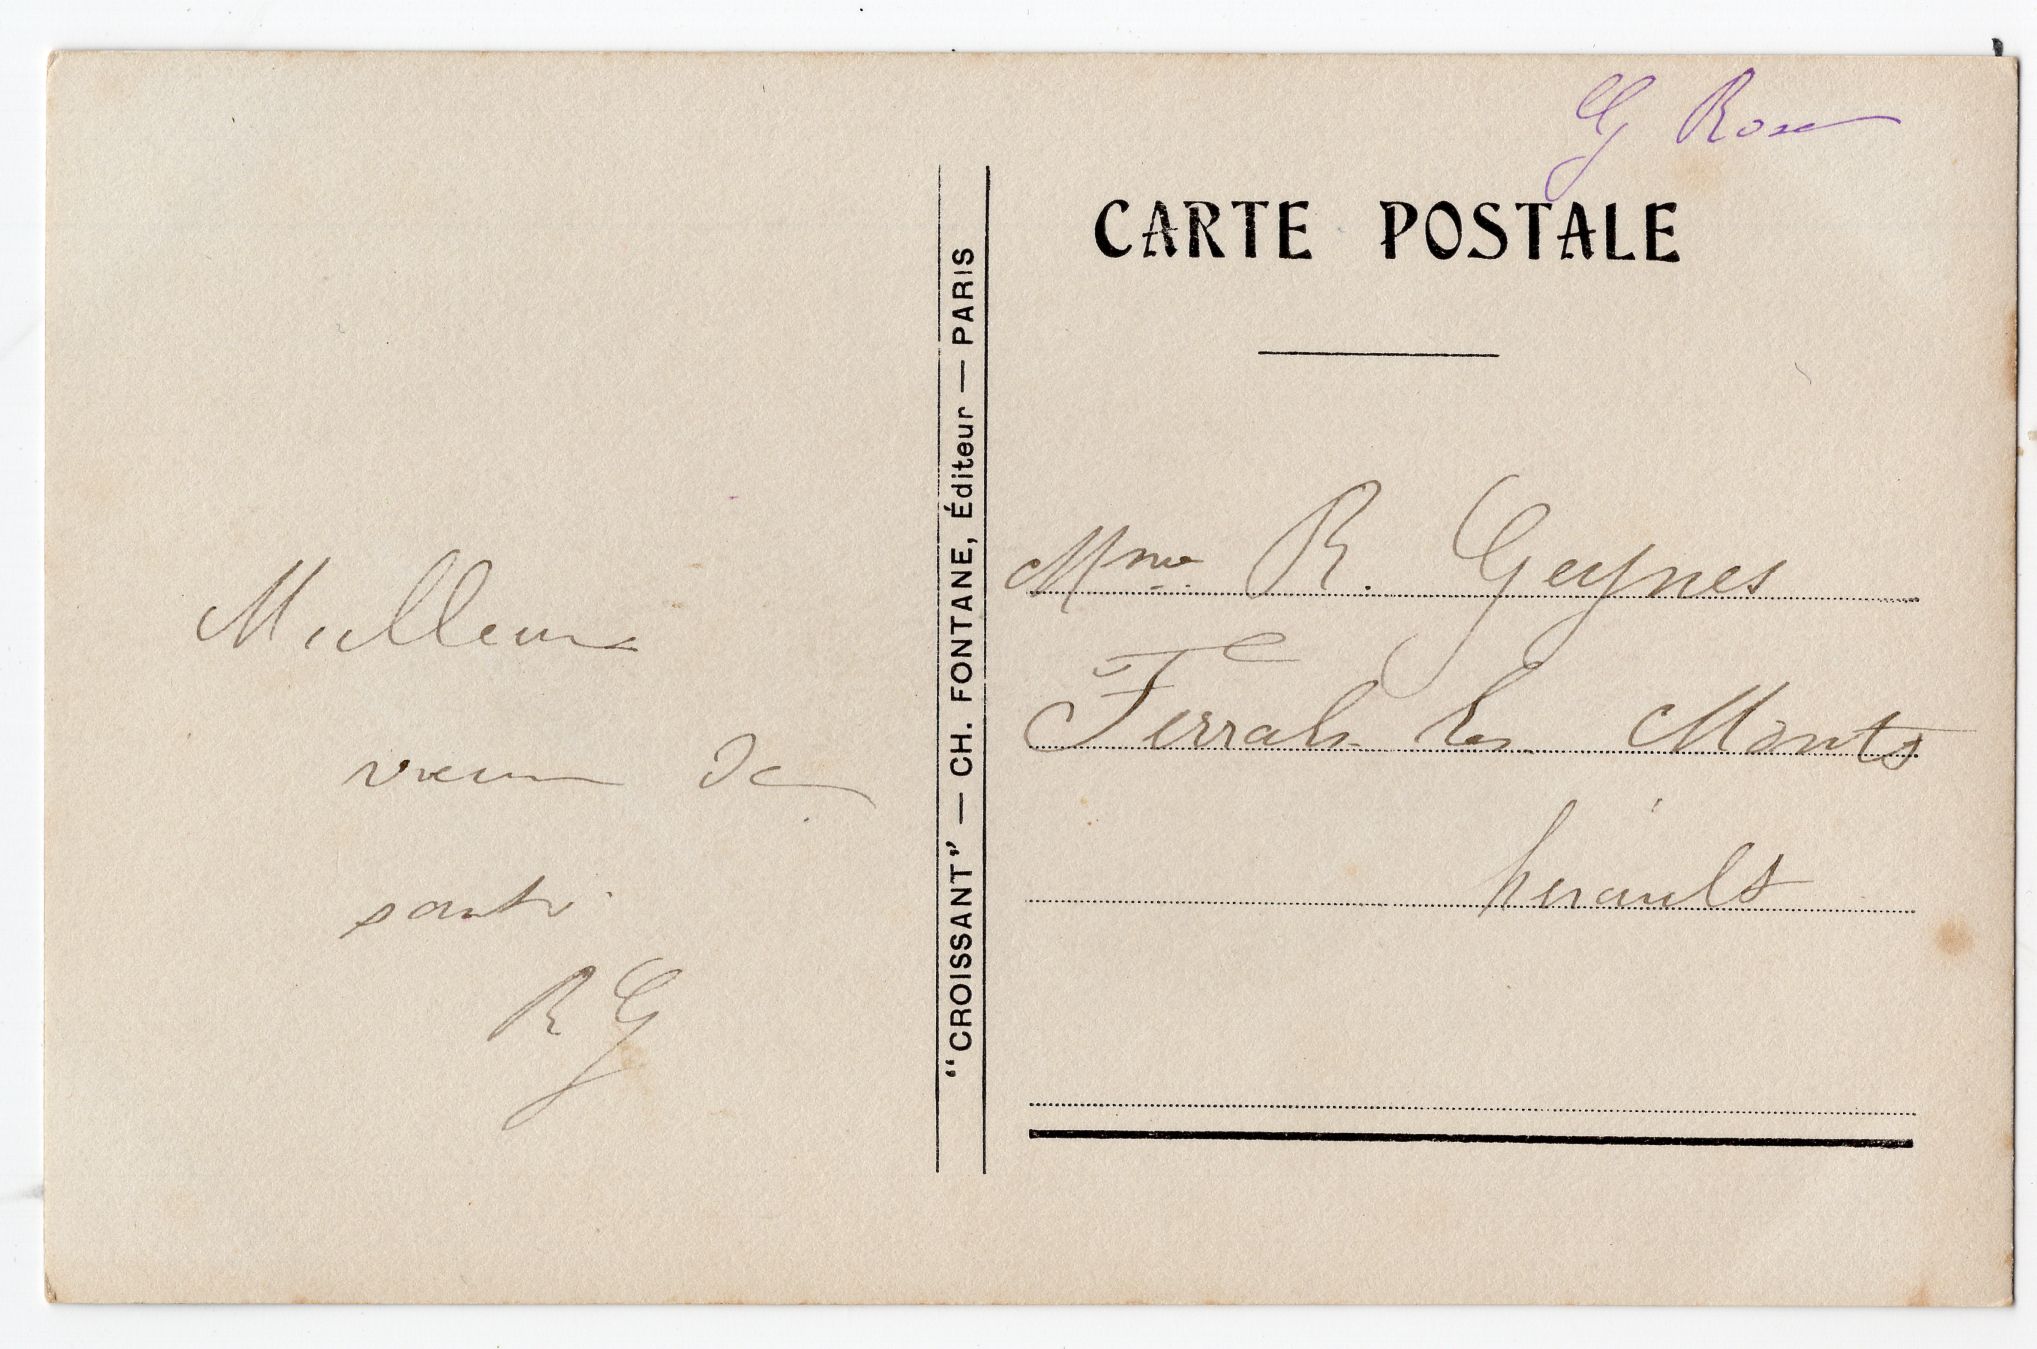 G Rose
CARTE POSTALE
"CROISSANT" — CH. FONTANE, Éditeur — PARIS
Meilleurs
vœux de
santé
RG
Mme R. Geynes
Ferrals les Monts
hérault